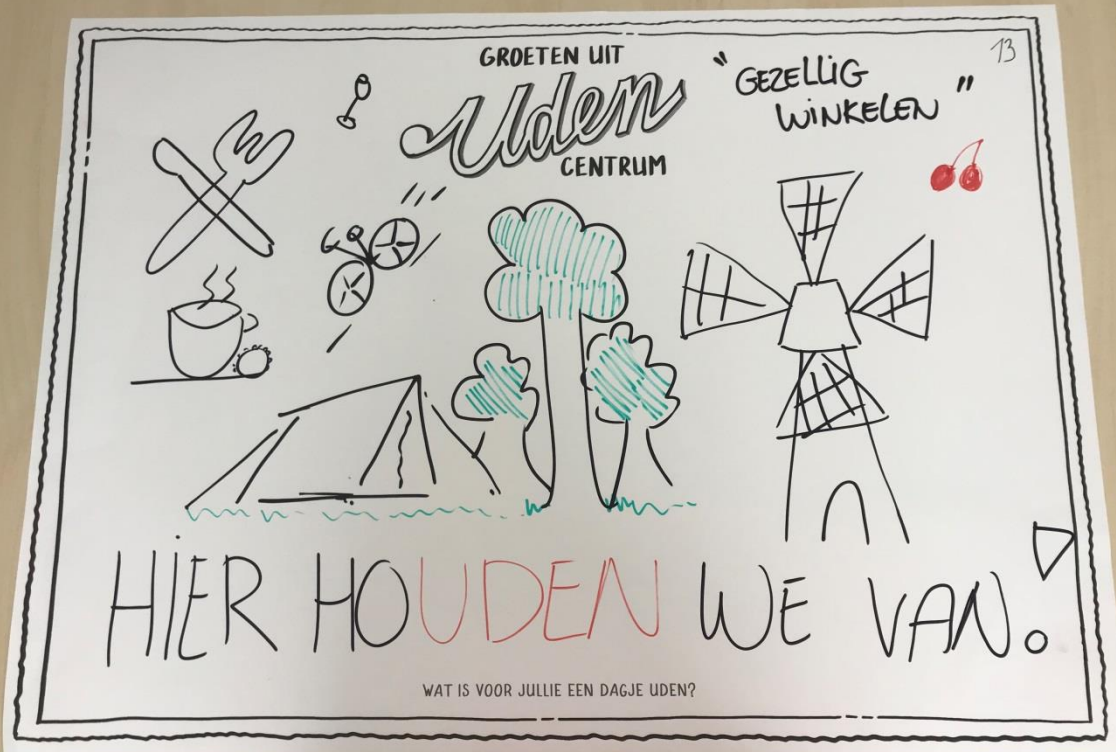 13
GROETEN UIT
Uden
CENTRUM
"GEZELLIG
WINKELEN"
HIER HOUDEN WE VAN!
WAT IS VOOR JULLIE EEN DAGJE UDEN?